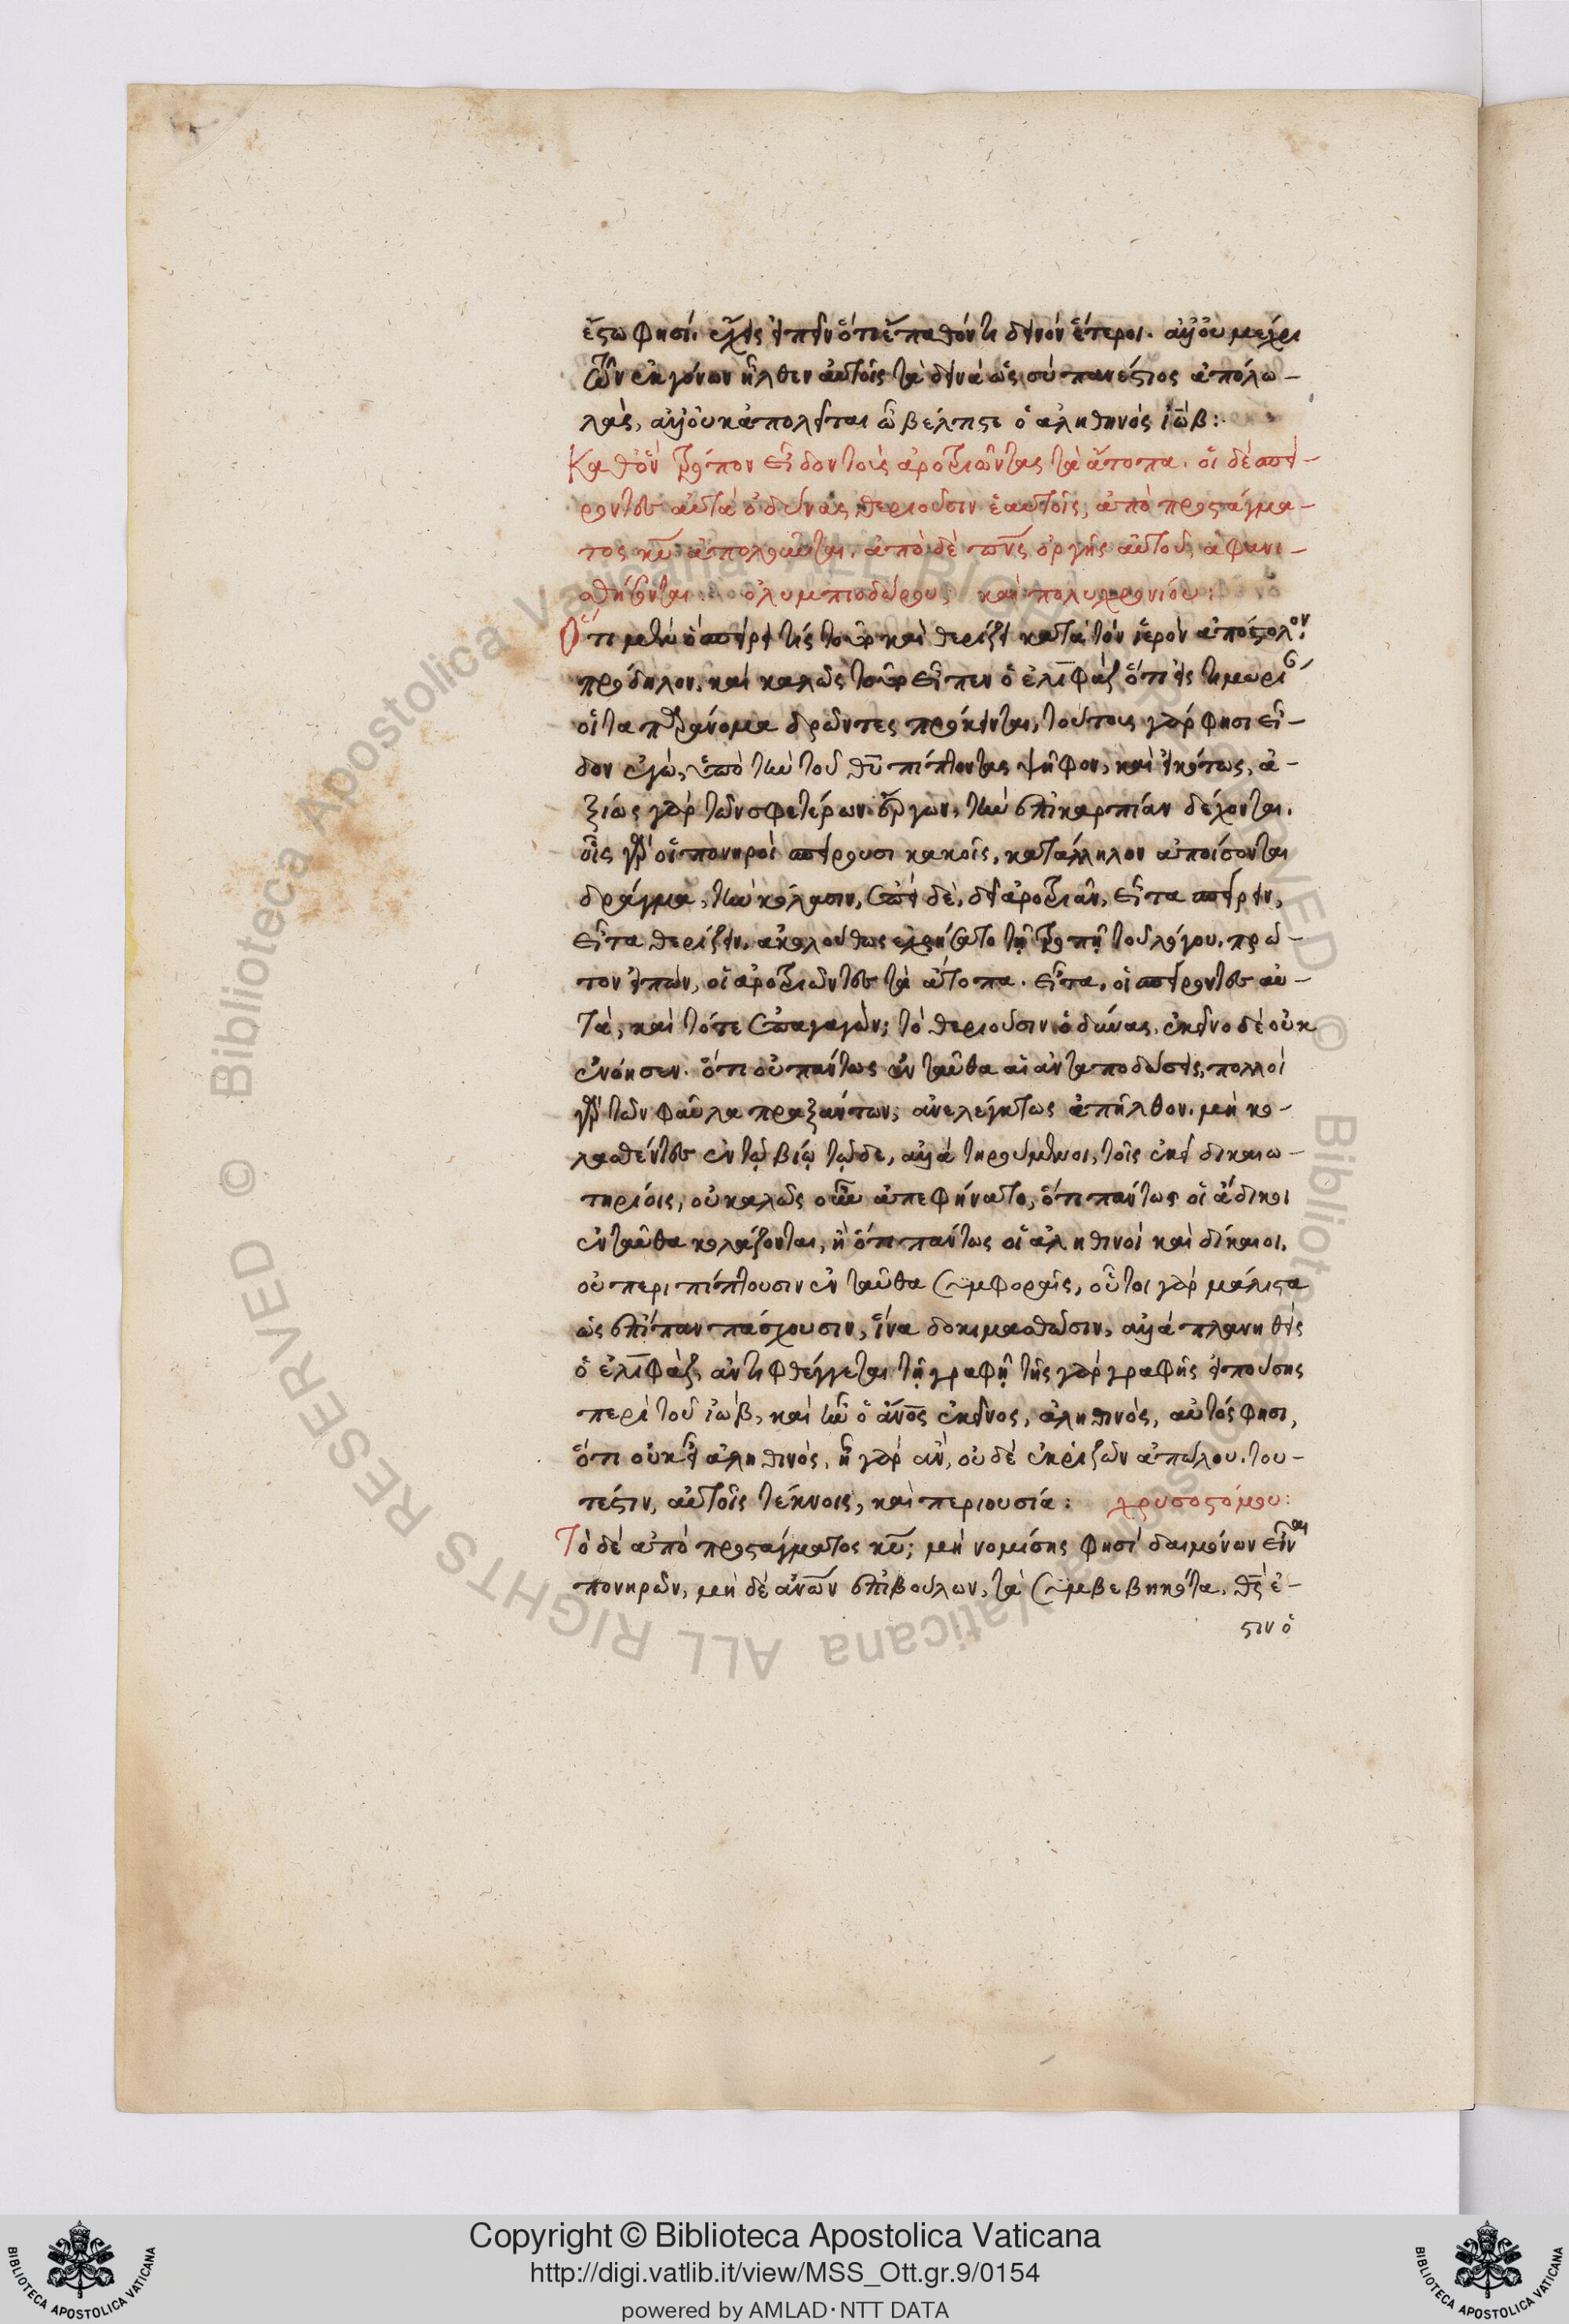 ἔςω φησί. ἔχεις εἰπεῖν ὅτι ἔπαθόν τι δεινὸν ἕτεροι. ἀλλ' οὐ μέχρι
τῶν ἐκγόνων ἦλθεν αὐτοῖς τὰ δεινὰ ὡς σὺ πανέστιος ἀπόλω-
λας, ἀλλ' οὐκ ἀπολεῖται ὦ βέλτιστε ὁ ἀληθινὸς ἰὼβ:
Καθ' ὃν τρόπον εἶδον τοὺς ἀροτριῶντας τὰ ἄτοπα. οἱ δὲ σπεί-
ροντες αὐτὰ ὀδύνας θεριοῦσιν ἑαυτοῖς, ἀπὸ προστάγμα-
τος κυ ἀπολοῦνται. ἀπὸ δὲ πνς ὀργῆς αὐτοῦ, ἀφανι-
σθήσονται: ὀλυμπιοδώρου, καὶ πολυχρονίου:
Ὅτι μὲν ὃ σπείρει τίς τοῦτο καὶ θερίζει κατὰ τὸν ἱερὸν ἀπόστολον,
πρόδηλον. καὶ καλῶς τοῦτο εἶπεν ὁ ἐλιφὰζ ὅτι εἰς τιμωρίαν
οἱ τὰ παράνομα δρῶντες πρόκεινται, τούτους γάρ φησι εἶ-
δον ἐγὼ, ὑπὸ τὴν τοῦ θυ πίπτοντας ψῆφον, καὶ εἰκότως, ἀ-
ξίως γὰρ τῶν σφετέρων ἔργων, τὴν ἐπικαρπίαν δέχονται.
οἷς γὰρ οἱ πονηροὶ σπείρουσι κακοῖς, κατάλληλον ἀποίσονται
δράγμα, τὴν κόλασιν, ἐπεὶ δὲ, δεῖ ἀροτριᾶν, εἶτα σπείρειν,
εἶτα θερίζειν. ἀκολούθως ἐχρήσατο τῇ τροπῇ τοῦ λόγου. πρῶ-
τον εἰπὼν, οἱ ἀροτριῶντες τὰ ἄτοπα. εἶτα, οἱ σπείροντες αὐ-
τὰ, καὶ τότε ἐπαγαγὼν, τὸ θεριοῦσιν ὀδύνας. ἐκεῖνο δὲ οὐκ
ἐνόησεν. ὅτι οὐ πάντως ἐνταῦθα αἱ ἀνταποδώσεις, πολλοὶ
γὰρ τῶν φαῦλα πραξάντων, ἀνελέγκτως ἀπῆλθον. μὴ κο-
λασθέντες ἐν τῷ βίῳ τῷδε, ἀλλὰ τηρούμενοι, τοῖς ἐκεῖ δικαιω-
τηρίοις, οὐ καλῶς οὖν ἀπεφήνατο, ὅτι πάντως οἱ ἄδικοι
ἐνταῦθα κολάζονται, ἢ ὅτι πάντως οἱ ἀληθινοὶ καὶ δίκαιοι.
οὐ περιπίπτουσιν ἐνταῦθα συμφοραῖς, οὗτοι γὰρ μάλιστα
ὡς ἐπίπαν πάσχουσιν, ἵνα δοκιμασθῶσιν, ἀλλὰ πλανηθεὶς
ὁ ἐλιφὰζ, ἀντιφθέγγεται τῇ γραφῇ τῆς γὰρ γραφῆς εἰπούσης
περὶ τοῦ ἰὼβ, καὶ ἦν ὁ ανος ἐκεῖνος, ἀληθινὸς, αὐτός φησι,
ὅτι οὐκ εἶ ἀληθινὸς, ἦ γὰρ ἂν, οὐδὲ ἐκ ῥιζῶν ἀπώλου. του-
τέστιν, αὐτοῖς τέκνοις, καὶ περιουσία: χρυσοστόμου:
Τὸ δὲ ἀπὸ προστάγματος κυ, μὴ νομίσῃς φησὶ δαιμόνων εἶναι
πονηρῶν, μὴ δὲ ανων ἐπιβούλων, τὰ συμβεβηκότα. θς ἐ-
στιν ὁ
Copyright © Biblioteca Apostolica Vaticana
http://digi.vatlib.it/view/MSS_Ott.gr.9/0154
powered by AMLAD·NTT DATA
BIBLIOTECA APOSTOLICA VATICANA
BIBLIOTECA APOSTOLICA VATICANA
© Biblioteca Apostolica Vaticana ALL RIGHTS RESERVED
© Biblioteca Apostolica Vaticana ALL RIGHTS RESERVED